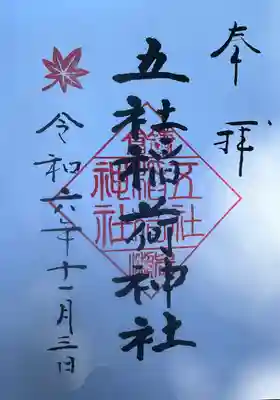 奉拝
五社稲荷神社
令和六年十一月三日
五社
稲荷
神社